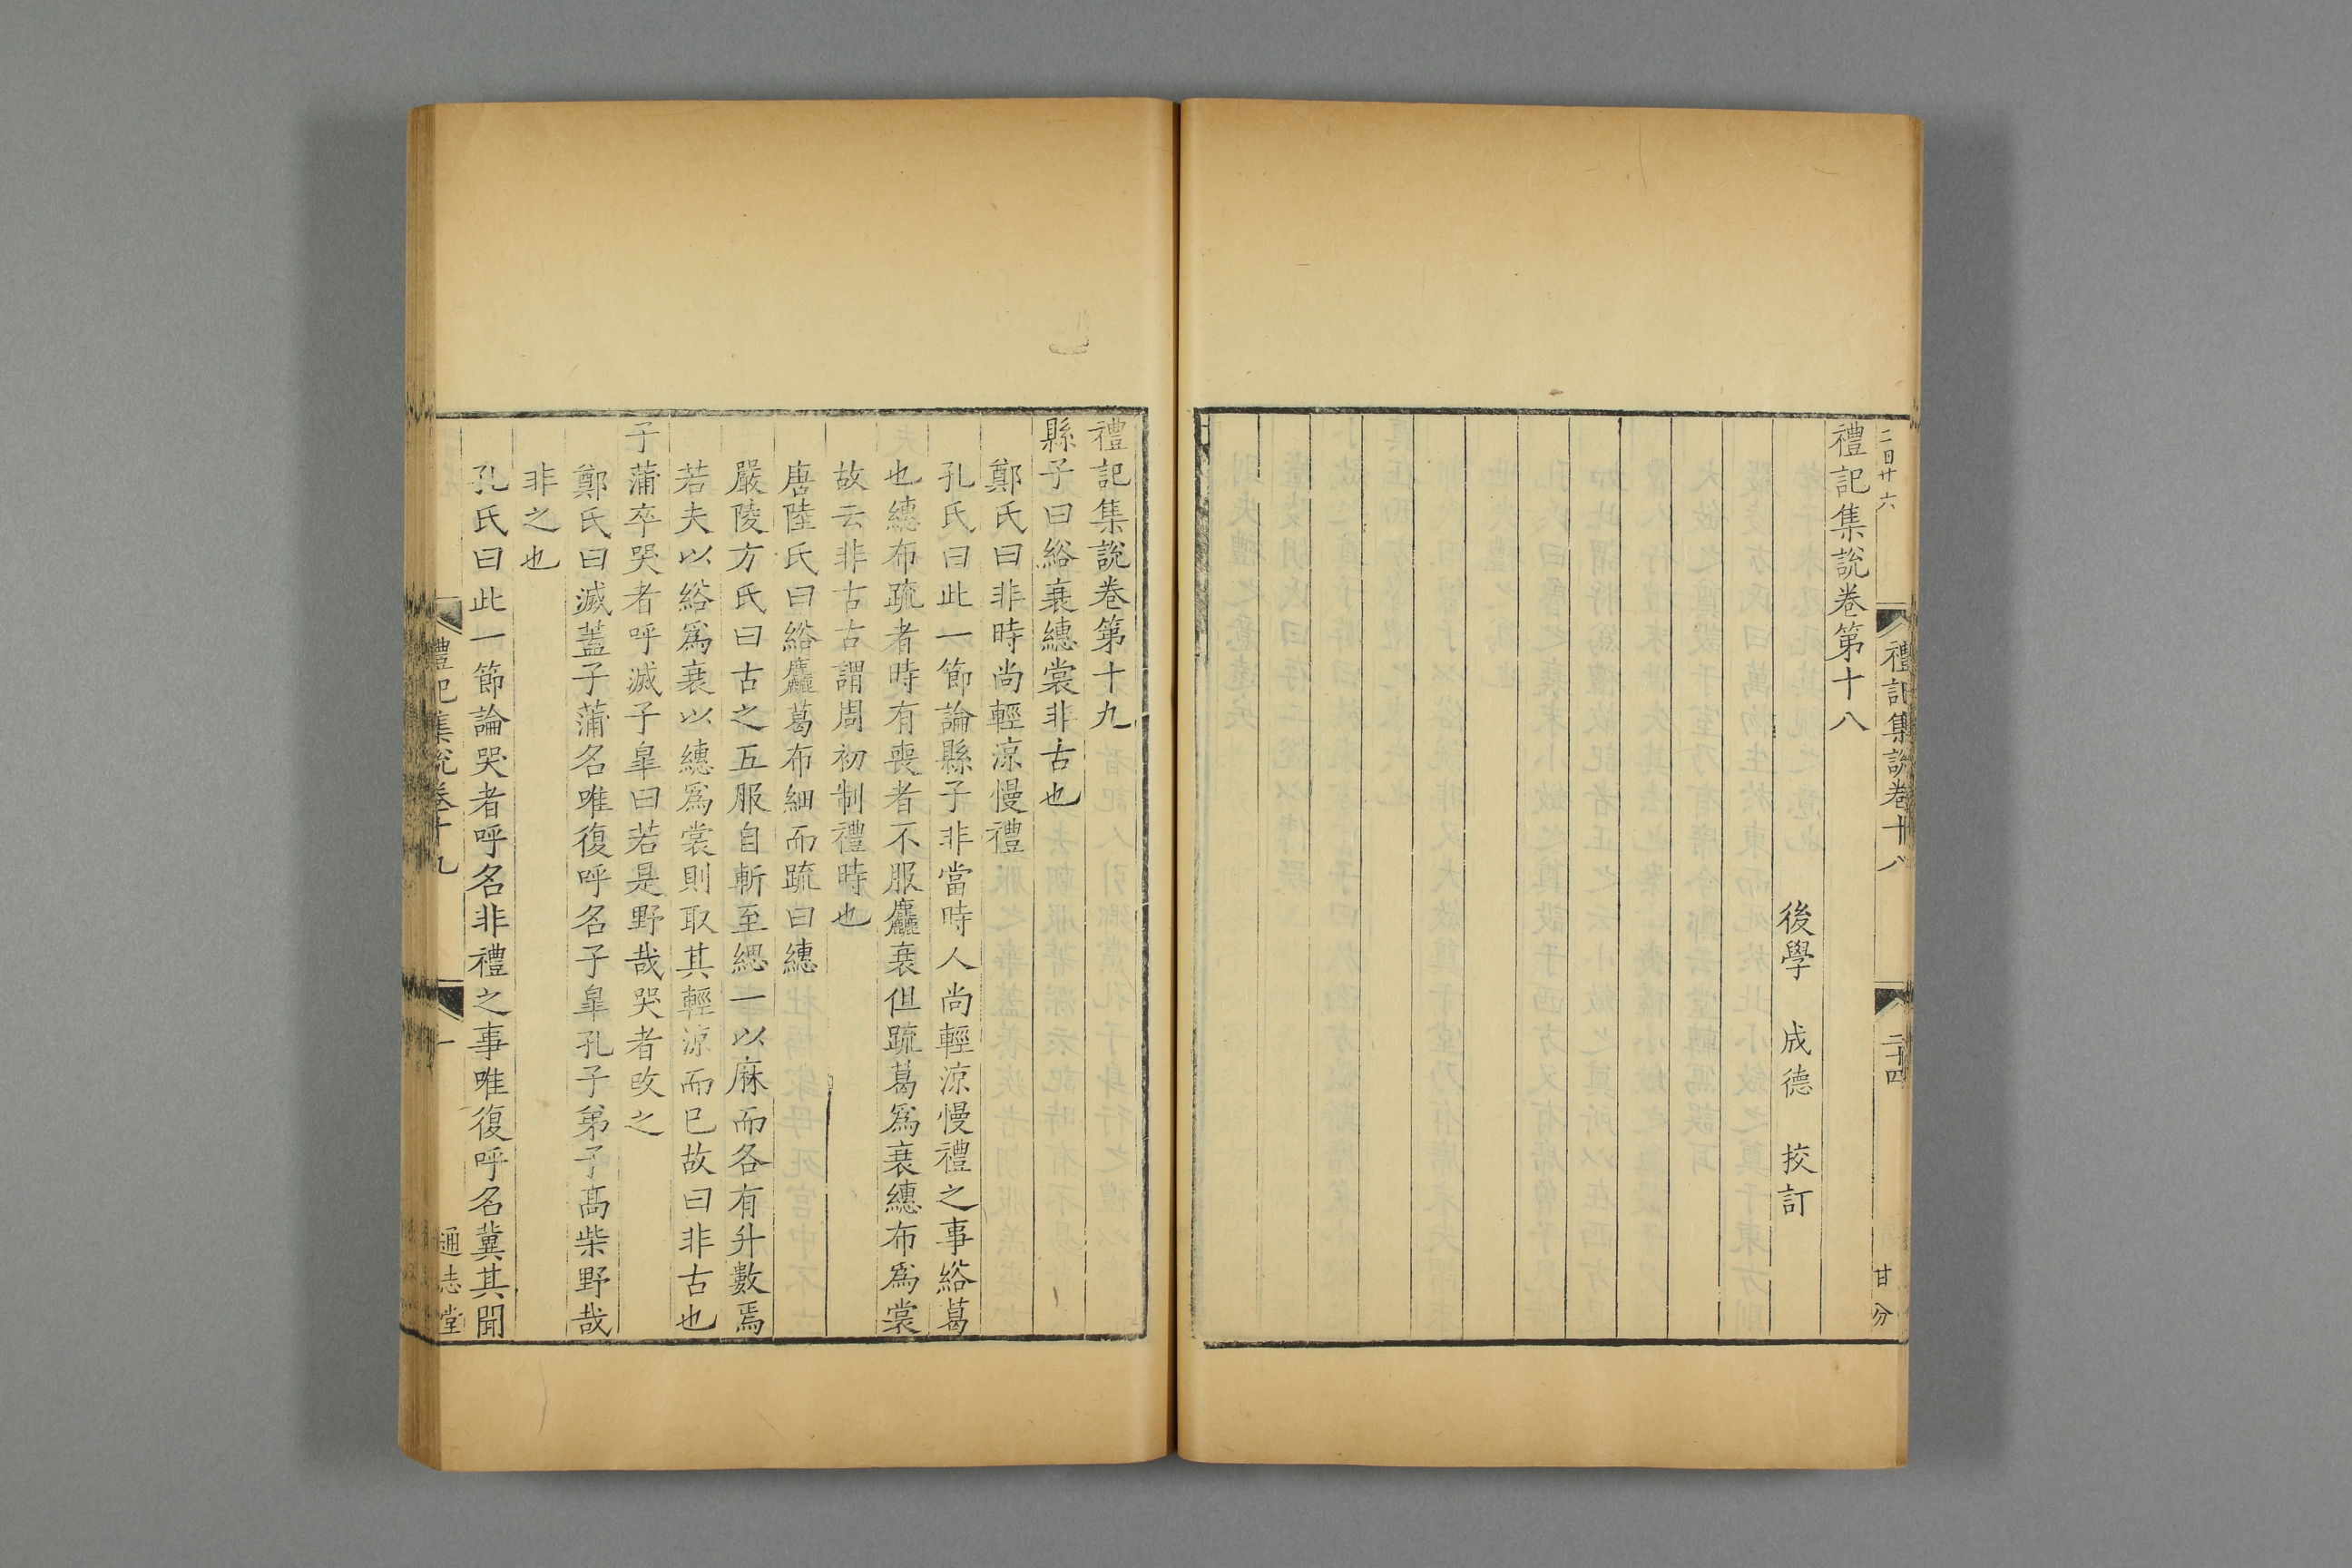 二百廿六
禮記集說卷十八
二十四
甘分
禮記集說卷第十八
後學 成德 挍訂
禮記集說卷第十九
縣子曰綌衰繐裳非古也
鄭氏曰非時尚輕涼慢禮
孔氏曰此一節論縣子非當時人尚輕涼慢禮之事綌葛
也繐布疏者時有喪者不服麤衰但疏葛爲衰繐布爲裳
故云非古古謂周初制禮時也
唐陸氏曰綌麤葛布細而疏曰繐
嚴陵方氏曰古之五服自斬至緦一以麻而各有升數焉
若夫以綌爲衰以繐爲裳則取其輕涼而已故曰非古也
子蒲卒哭者呼滅子臯曰若是野哉哭者改之
鄭氏曰滅蓋子蒲名唯復呼名子臯孔子弟子高柴野哉
非之也
孔氏曰此一節論哭者呼名非禮之事唯復呼名冀其聞
禮記集說卷十九
一
通志堂